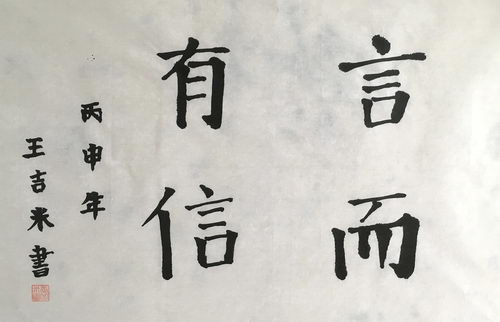 言而
有信
丙申年
王吉米書